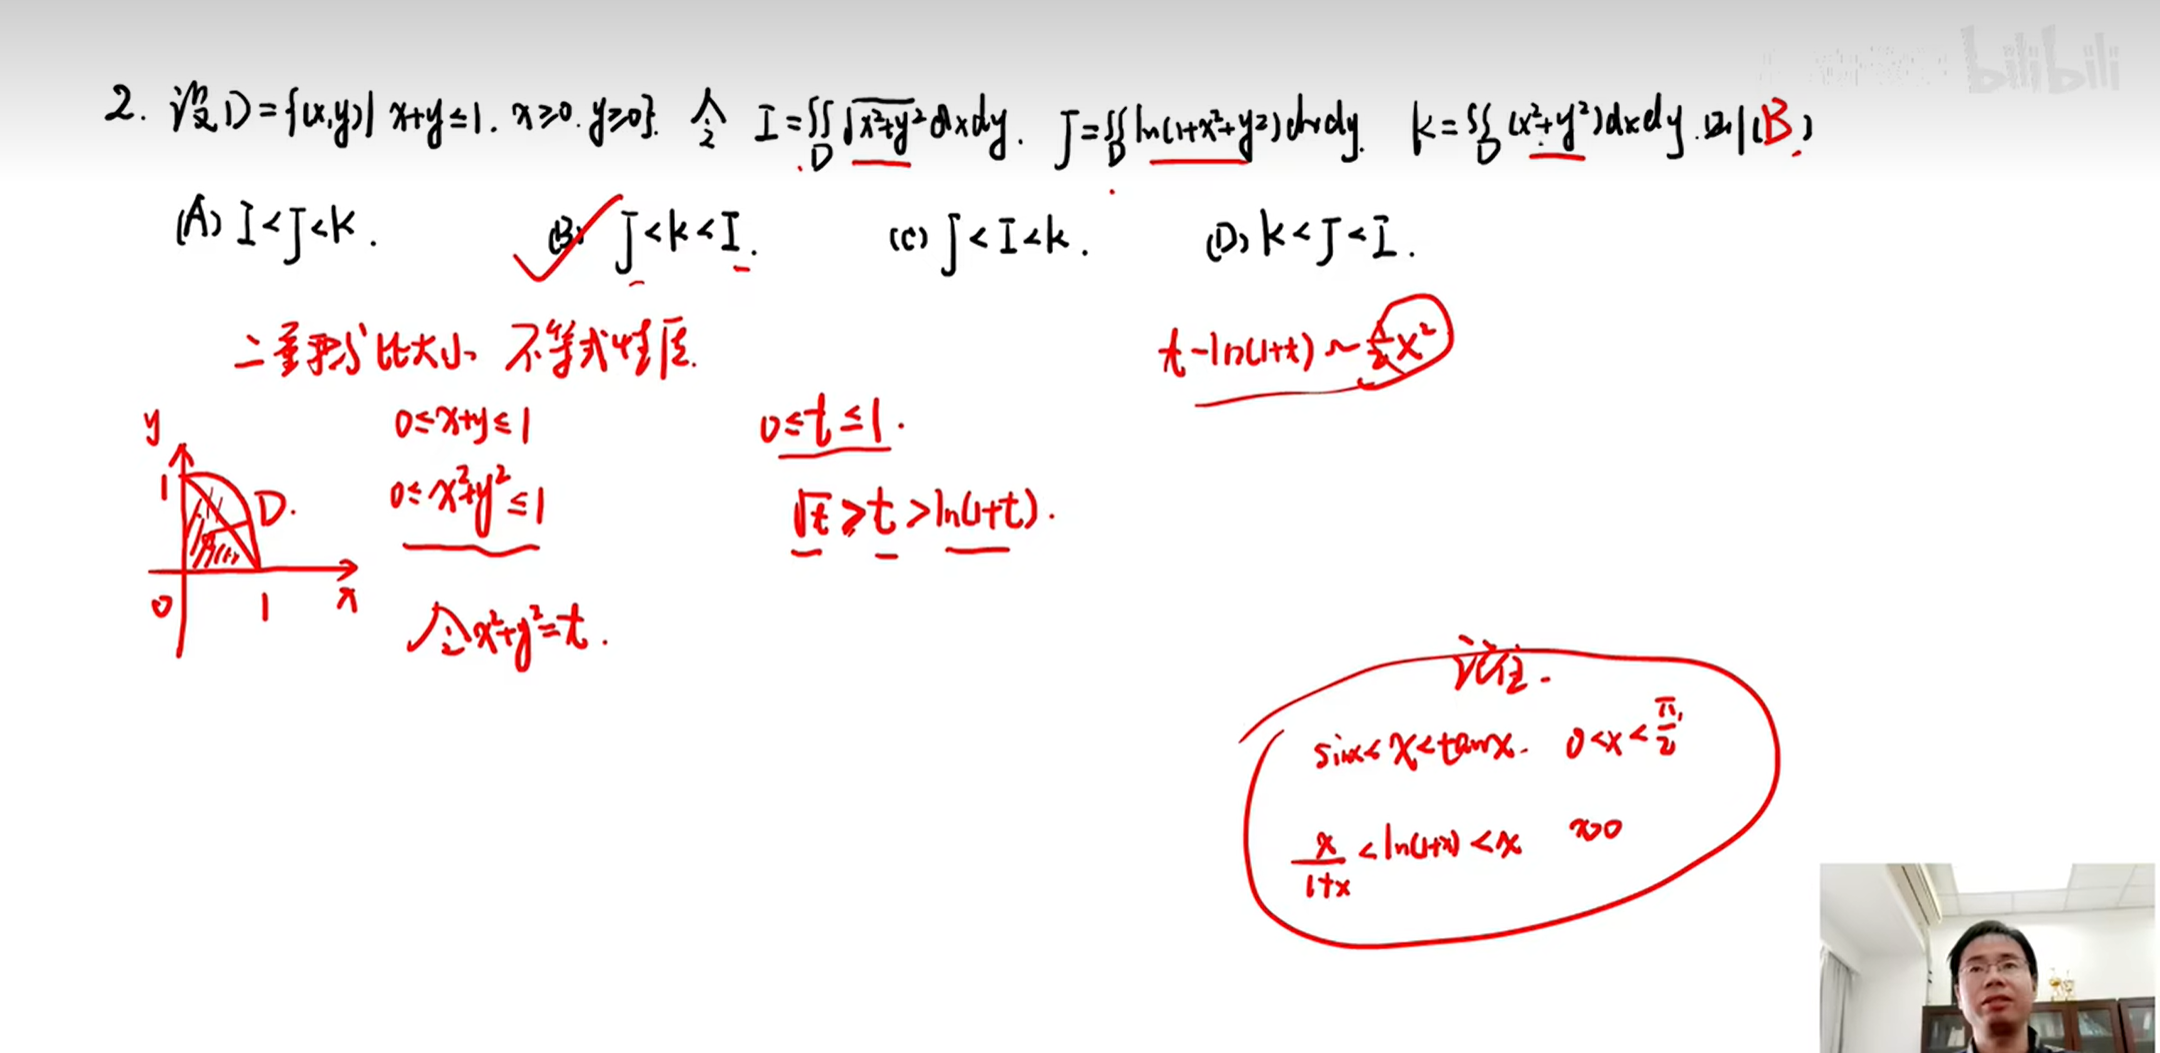 bilibili
2. 设D={(x,y)| x+y≤1. x≥0. y≥0}. 令 I=∬_D √(x²+y²) dxdy. J=∬_D ln(1+x²+y²)dxdy. K=∬_D (x²+y²)dxdy. 则(B)
(A) I<J<K. (B) J<K<I. (C) J<I<K. (D) K<J<I.
二重积分比大小 不等式性质.
t-ln(1+t)~½x²
y
0≤x+y≤1
0≤t≤1.
1
D.
0≤x²+y²≤1
√t≥t>ln(1+t).
0 1 x
令x²+y²=t.
记住.
sinx<x<tanx. 0<x<π/2,
x/(1+x)<ln(1+x)<x x>0